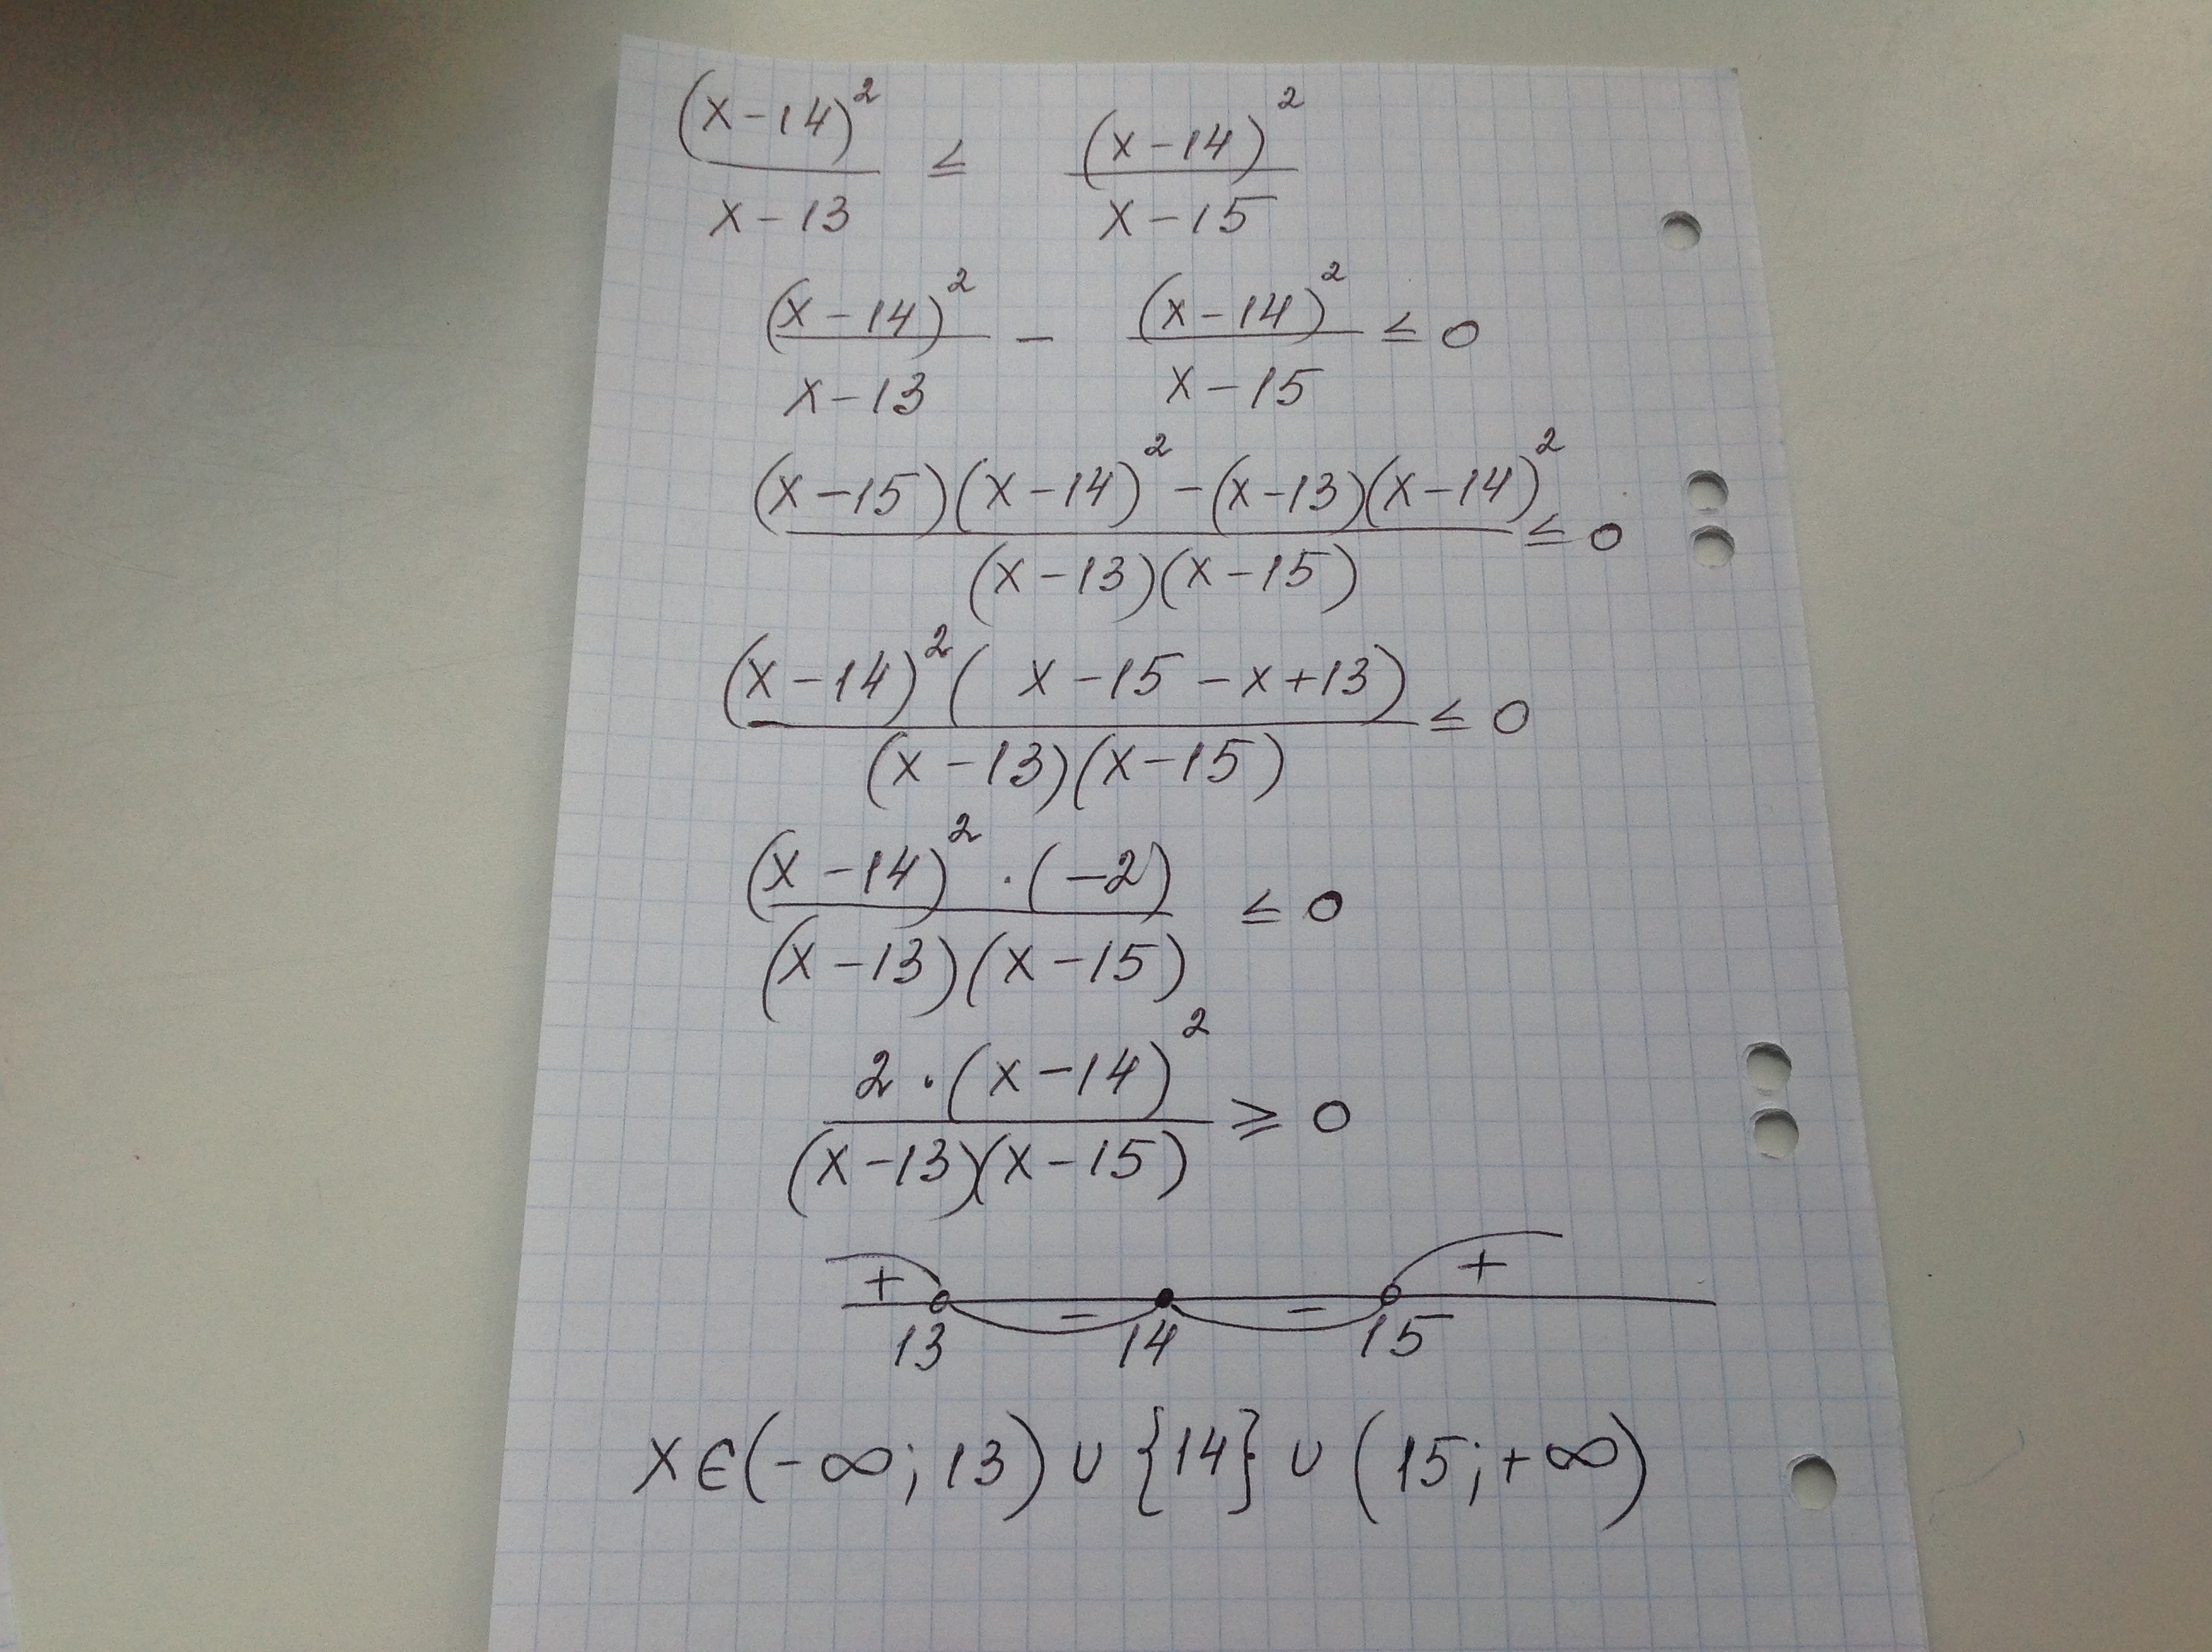 (x-14)² / x-13 ≤ (x-14)² / x-15
(x-14)² / x-13 - (x-14)² / x-15 ≤ 0
(x-15)(x-14)² - (x-13)(x-14)² / (x-13)(x-15) ≤ 0
(x-14)²(x-15-x+13) / (x-13)(x-15) ≤ 0
(x-14)² · (-2) / (x-13)(x-15) ≤ 0
2 · (x-14)² / (x-13)(x-15) ≥ 0
+ - - +
13 14 15
x∈(-∞; 13) ∪ {14} ∪ (15; +∞)